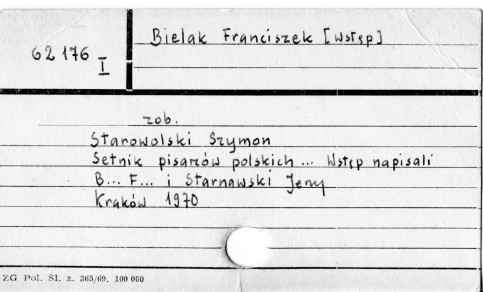 Bielak Franciszek [wstęp]
62 176 I
zob.
Starowolski Szymon
Setnik pisarzów polskich ... Wstęp napisali
B... F... i Starnawski Jerzy
Kraków 1970
ZG Pol. Śl. z. 365/69. 100 000